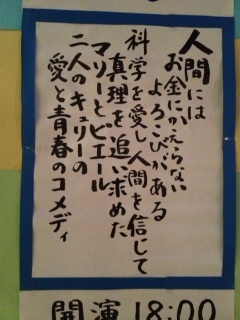 人間には
お金にかえらない
よろこびがある
科学を愛し人間を信じて
真理を追い求めた
マリーとピエール
二人のキュリーの
愛と青春のコメディ
開演 18:00